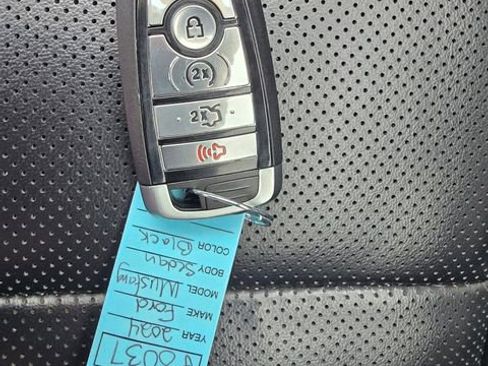 2x
2x
YEAR 2024
MAKE Ford
MODEL Mustang
BODY Sedan
COLOR Black